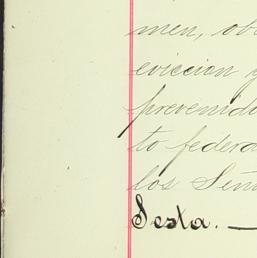 men, ob
eviccion y
prevenido
to federa
los Señ
Sesta. —